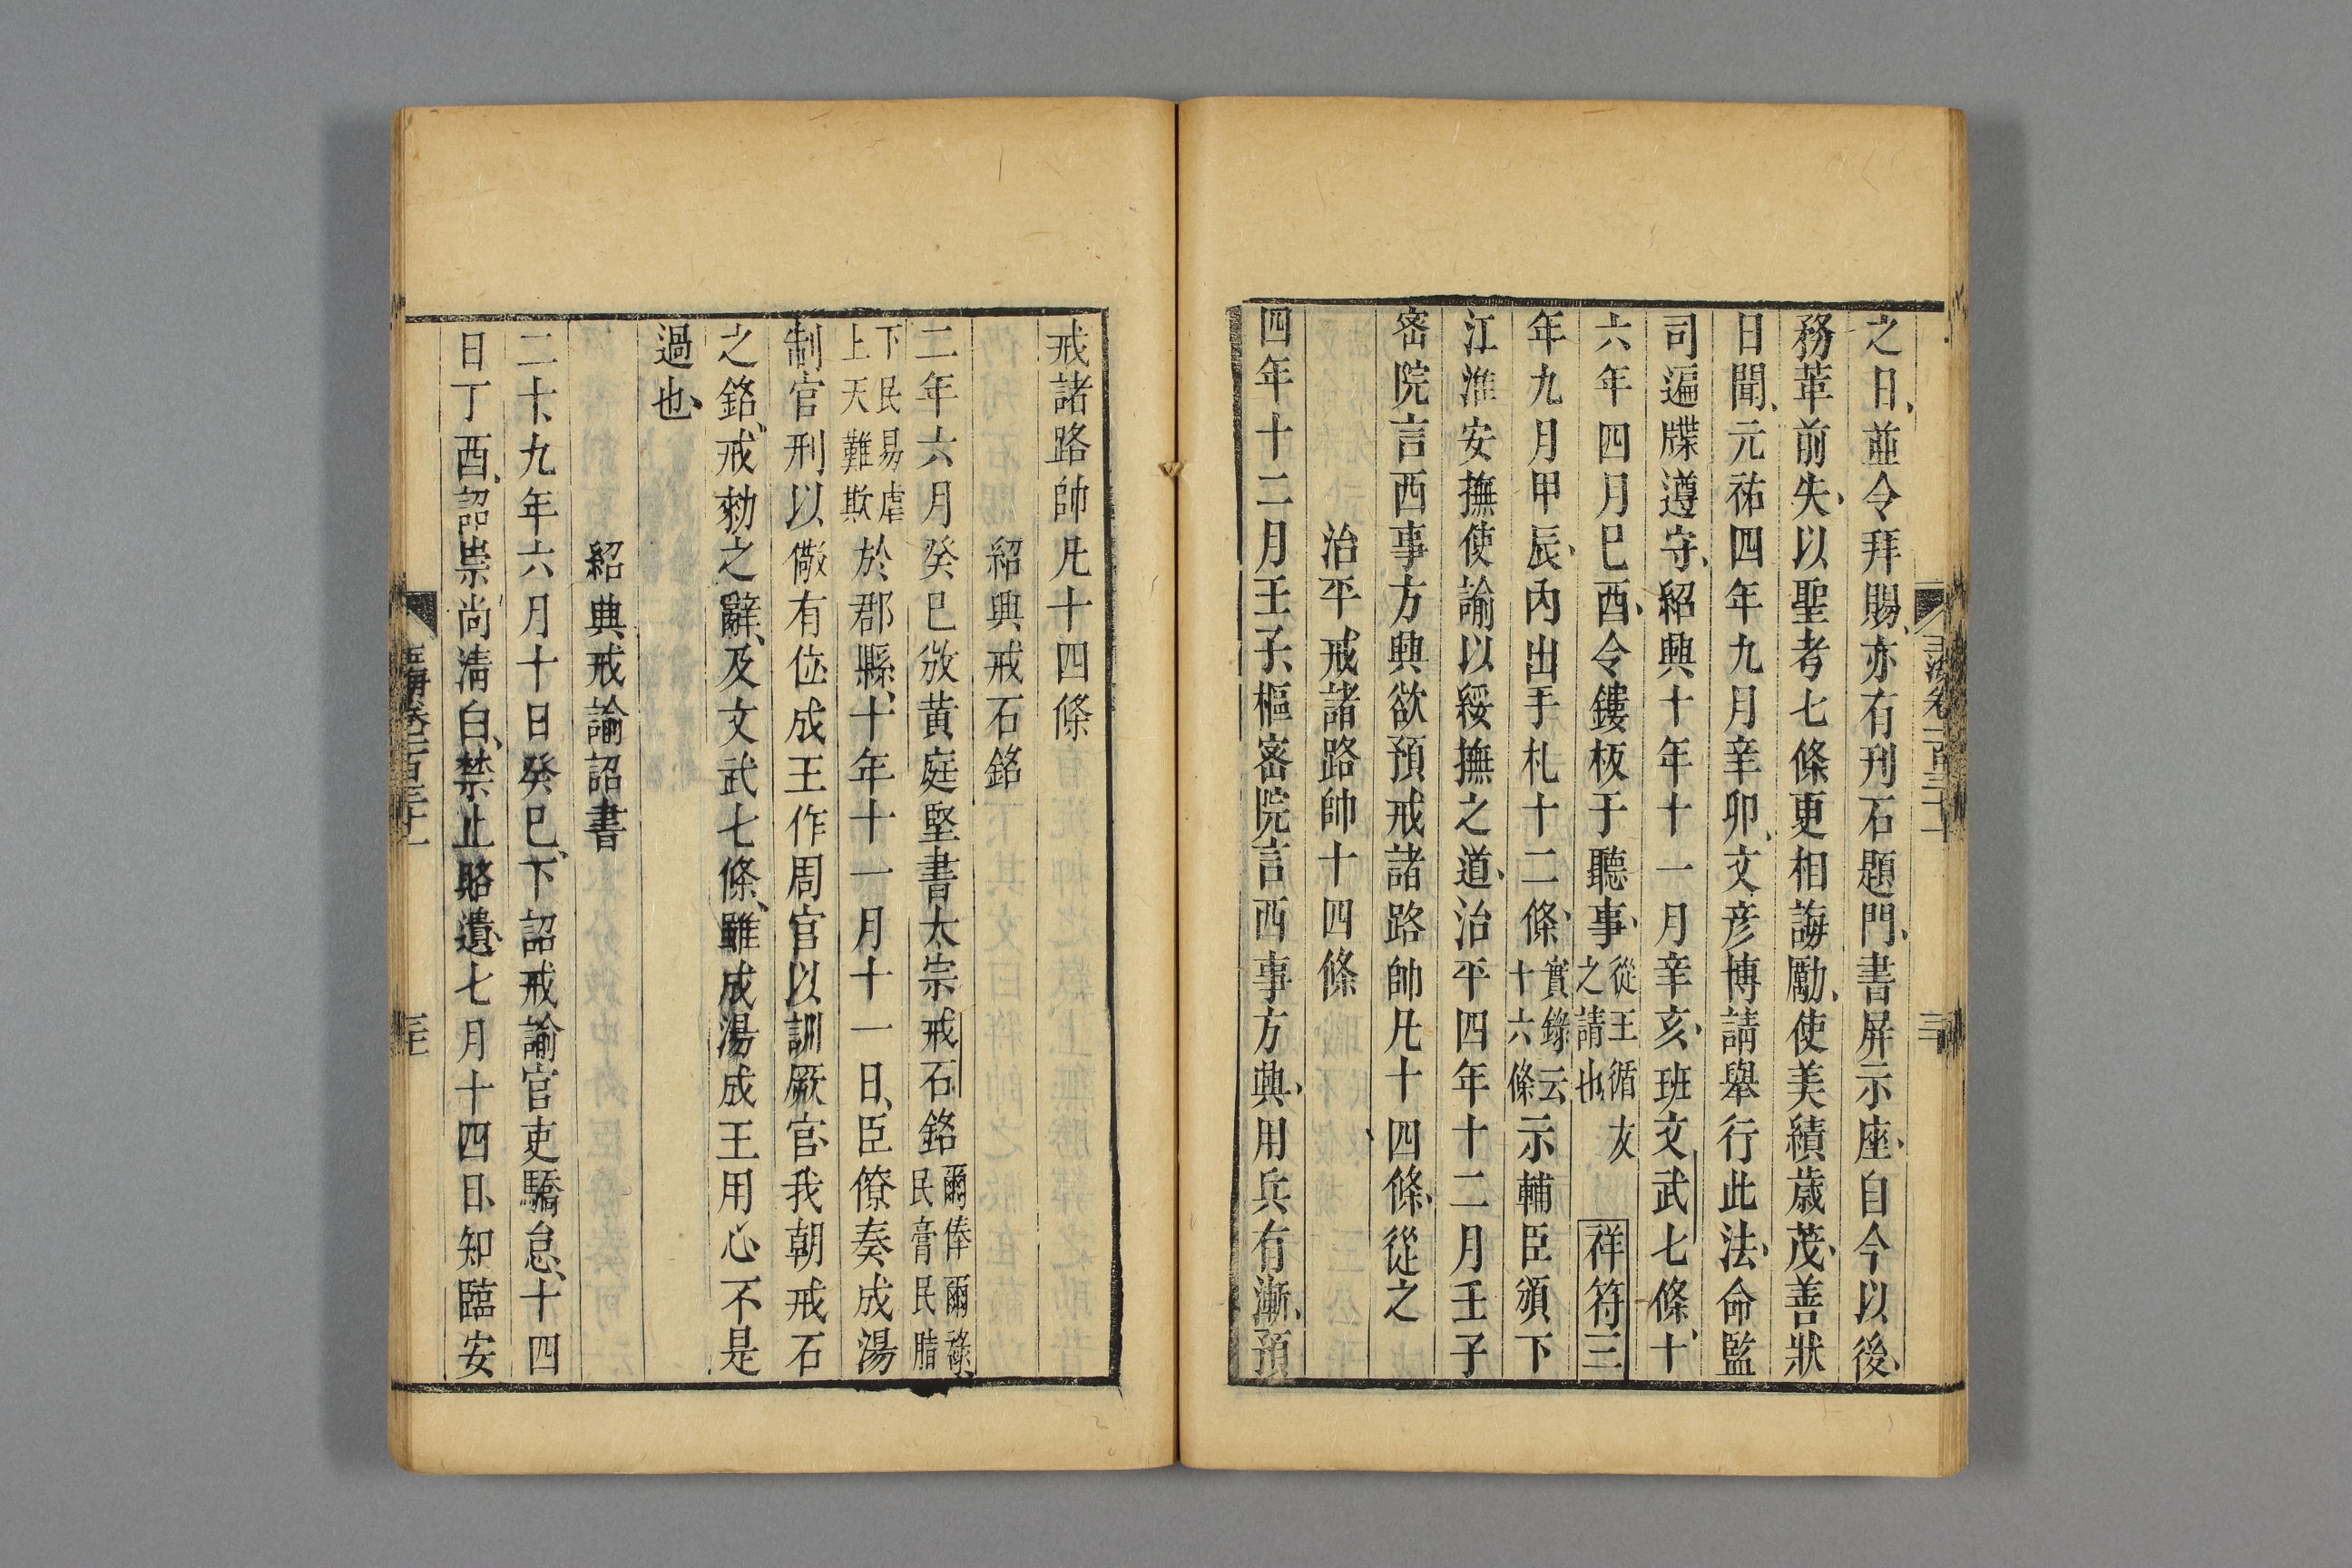 之日並令拜賜亦有刋石題門書屛示座自今以後
務革前失以聖者七條更相誨勵使美績歲茂善狀
日聞元祐四年九月辛卯文彥博請舉行此法命監
司遍牒遵守紹興十年十一月辛亥班文武七條十
六年四月巳酉令鏤板于聽事從王循友之請也祥符三
年九月甲辰內出手札十二條實錄云十六條示輔臣頒下
江淮安撫使諭以綏撫之道治平四年十二月壬子
密院言西事方興欲預戒諸路帥凡十四條從之
治平戒諸路帥十四條
四年十二月壬子樞密院言西事方興用兵有漸預
戒諸路帥凡十四條
紹興戒石銘
二年六月癸巳放黃庭堅書太宗戒石銘爾俸爾祿民膏民脂
下民易虐上天難欺於郡縣十年十一月十一日臣僚奏成湯
制官刑以儆有位成王作周官以訓厥官我朝戒石
之銘戒勑之辭及文武七條雖成湯成王用心不是
過也
紹興戒諭詔書
二十九年六月十日癸巳下詔戒諭官吏驕怠十四
日丁酉詔崇尚淸白禁止賂遺七月十四日知臨安